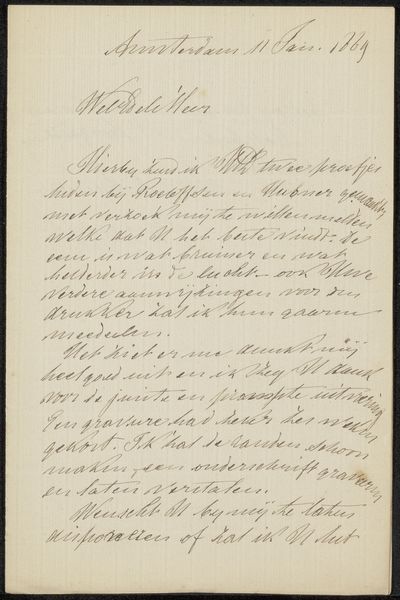 Amsterdam 11 Jan. 1889
WelEdele Heer
Hierbij zend ik UEd. twee proefjes
heden bij Roeloffzen en Hubner gemaakt
met verzoek mij te willen melden
welke dat U het beste vindt. De
een is wat bruiner en wat
helderder in de lucht – ook Uwe
verdere aanwijzingen voor den
drukker zal ik hun gaarne
mededeelen.
Het ziet er me dunkt
heel goed uit en ik zeg U dank
voor de juiste en prompte uitvoering
Een gravure had zeker zes weken
gekost. Ik zal de randen schoon
maken, een onderschrift graveeren
en laten verstalen.
Wenscht U bij mij te laten
of zal ik U het